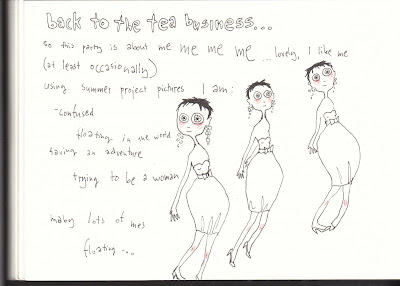 back to the tea business...
so this party is about me me me me ... lovely, I like me
(at least occasionally)
using summer project pictures I am:
-confused
floating in the world
having an adventure
trying to be a woman
many lots of mes
floating ....